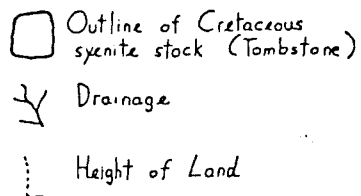 Outline of Cretaceous
syenite stock (Tombstone)
Drainage
Height of Land